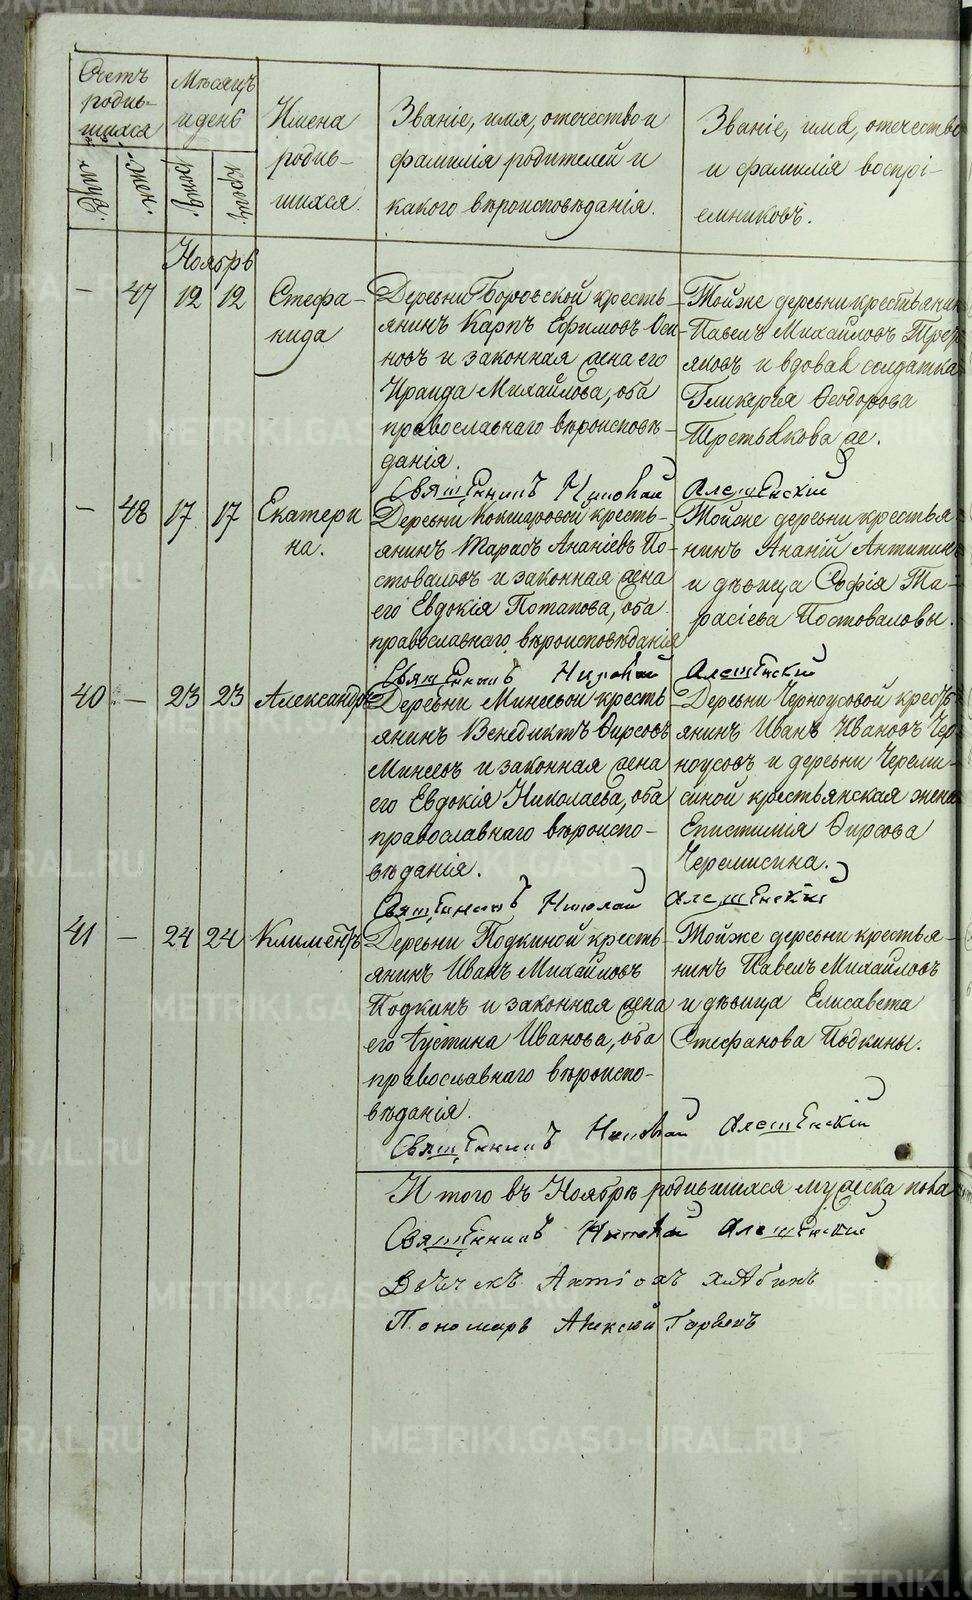 Счетъ родив-шихся
Мѣсяцъ и день
Имена родив-шихся.
Званіе, имя, отечество и фамилія родителей и какого вѣроисповѣданія.
Званіе, имя, отечество и фамилія воспрі-емниковъ.
Ноябрь
– 47 12 12 Стефа-
нида
Деревни Боровской кресть-
янинъ Карпъ Ефимовъ Оси-
новъ и законная жена его
Ираида Михайлова, оба
православнаго вѣроисповѣ-
данія.
Тойже деревни крестьянин
Павелъ Михайловъ Треть
яковъ и вдовая солдатка
Гликерія Ѳеодорова
Третьякова же.
Священникъ Николай Алешенскій
– 48 17 17 Екатери
на.
Деревни Кокшаровой кресть-
янинъ Тарасъ Ананіевъ По-
стоваловъ и законная жена
его Евдокія Потапова, оба
православнаго вѣроисповѣданія
Тойже деревни крестья-
нинъ Ананій Антипинъ
и дѣвица Софія Та-
расіева Постоваловы.
Священникъ Николай Алешенскій
40 – 23 23 Александръ
Деревни Минеевой кресть
янинъ Венедиктъ Ѳирсовъ
Минеевъ и законная жена
его Евдокія Николаева, оба
православнаго вѣроиспо-
вѣданія.
Деревни Черноусовой кресть
янинъ Иванъ Ивановъ Чер
ноусовъ и деревни Череми-
синой крестьянская жена
Епистимія Ѳирсова
Черемисина.
Священникъ Николай Алешенскій
41 – 24 24 Климентъ
Деревни Подкиной кресть-
янинъ Иванъ Михайловъ
Подкинъ и законная жена
его Іустина Иванова, оба
православнаго вѣроиспо-
вѣданія.
Тойже деревни крестья-
нинъ Павелъ Михайловъ
и дѣвица Елисавета
Стефанова Подкины.
Священникъ Николай Алешенскій
Итого въ Ноябрѣ родившихся мужеска пола
Священникъ Николай Алешенскій
Дьячекъ Антіохъ
Пономарь Алексѣй
METRIKI.GASO-URAL.RU